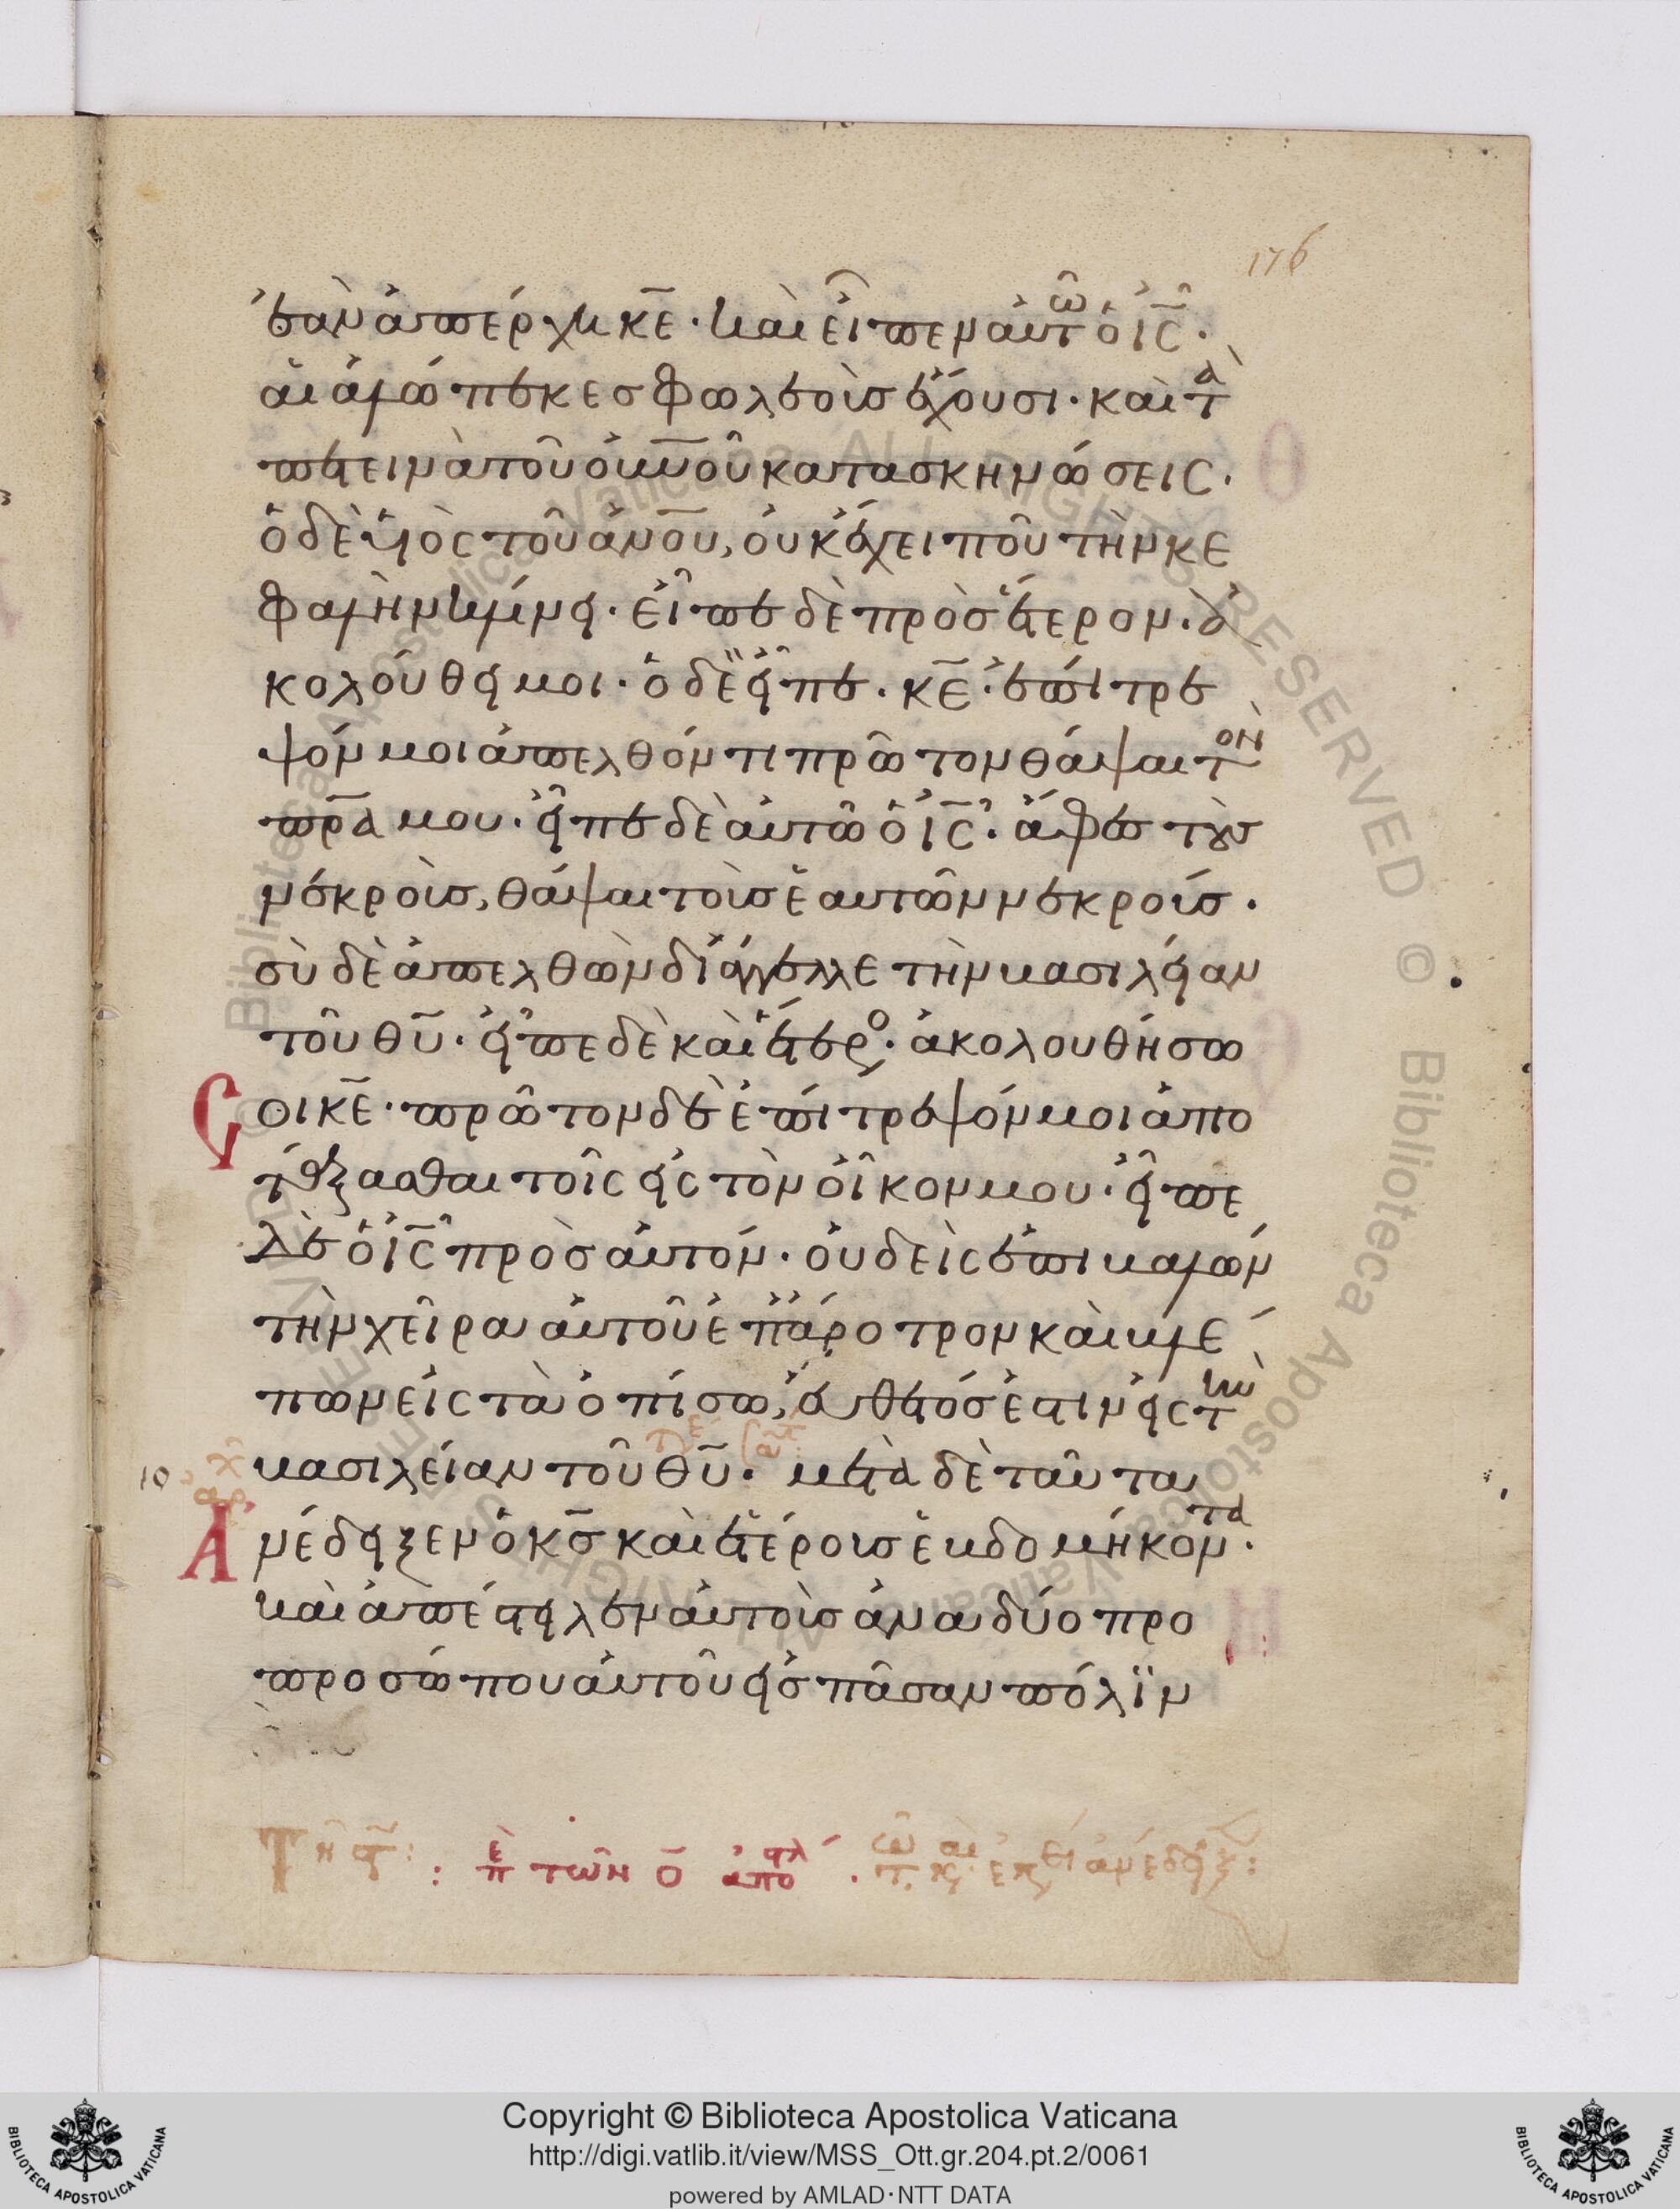 176
ἐὰν ἀπέρχη κ̅ε̅· καὶ εἶπεν αὐτῶ ὁ ἰ̅ς̅·
αἱ ἀλώπεκες φωλεοὺς ἔχουσι· καὶ τὰ
πετεινὰ τοῦ ο̅υ̅ν̅ο̅ῦ κατασκηνώσεις·
ὁ δὲ υἱὸς τοῦ α̅ν̅ο̅υ̅, οὐκ ἔχει ποῦ τὴν κε
φαλὴν κλίνη· εἶπε δὲ πρὸς ἕτερον· ἀ
κολούθει μοι· ὁ δὲ εἶπε· κ̅ε̅· ἐπίτρε
ψόν μοι ἀπελθόντι πρῶτον θάψαι τὸν
π̅ρ̅α̅ μου· εἶπε δὲ αὐτῶ ὁ ἰ̅ς̅· ἄφες τοὺς
νεκροὺς, θάψαι τοὺς ἑαυτῶν νεκρούς·
σὺ δὲ ἀπελθὼν διάγγελλε τὴν βασιλείαν
τοῦ θ̅υ̅· εἶπε δὲ καὶ ἕτερος· ἀκολουθήσω
σοι κ̅ε̅· πρῶτον δὲ ἐπίτρεψόν μοι ἀπο
τάξασθαι τοῖς εἰς τὸν οἶκον μου· εἶπε
δὲ ὁ ἰ̅ς̅ πρὸς αὐτόν· οὐδεὶς ἐπιβαλὼν
τὴν χεῖρα αὐτοῦ ἐπ' ἄροτρον καὶ βλέ
πων εἰς τὰ ὀπίσω, εὔθετός ἐστιν εἰς τὴν
βασιλείαν τοῦ θ̅υ̅· μετὰ δὲ ταῦτα
ἀνέδειξεν ὁ κ̅ς̅ καὶ ἑτέρους ἑβδομήκοντα·
καὶ ἀπέστειλεν αὐτοὺς ἀνα δύο προ
προσώπου αὐτοῦ εἰς πᾶσαν πόλϊν
Copyright © Biblioteca Apostolica Vaticana
http://digi.vatlib.it/view/MSS_Ott.gr.204.pt.2/0061
powered by AMLAD·NTT DATA